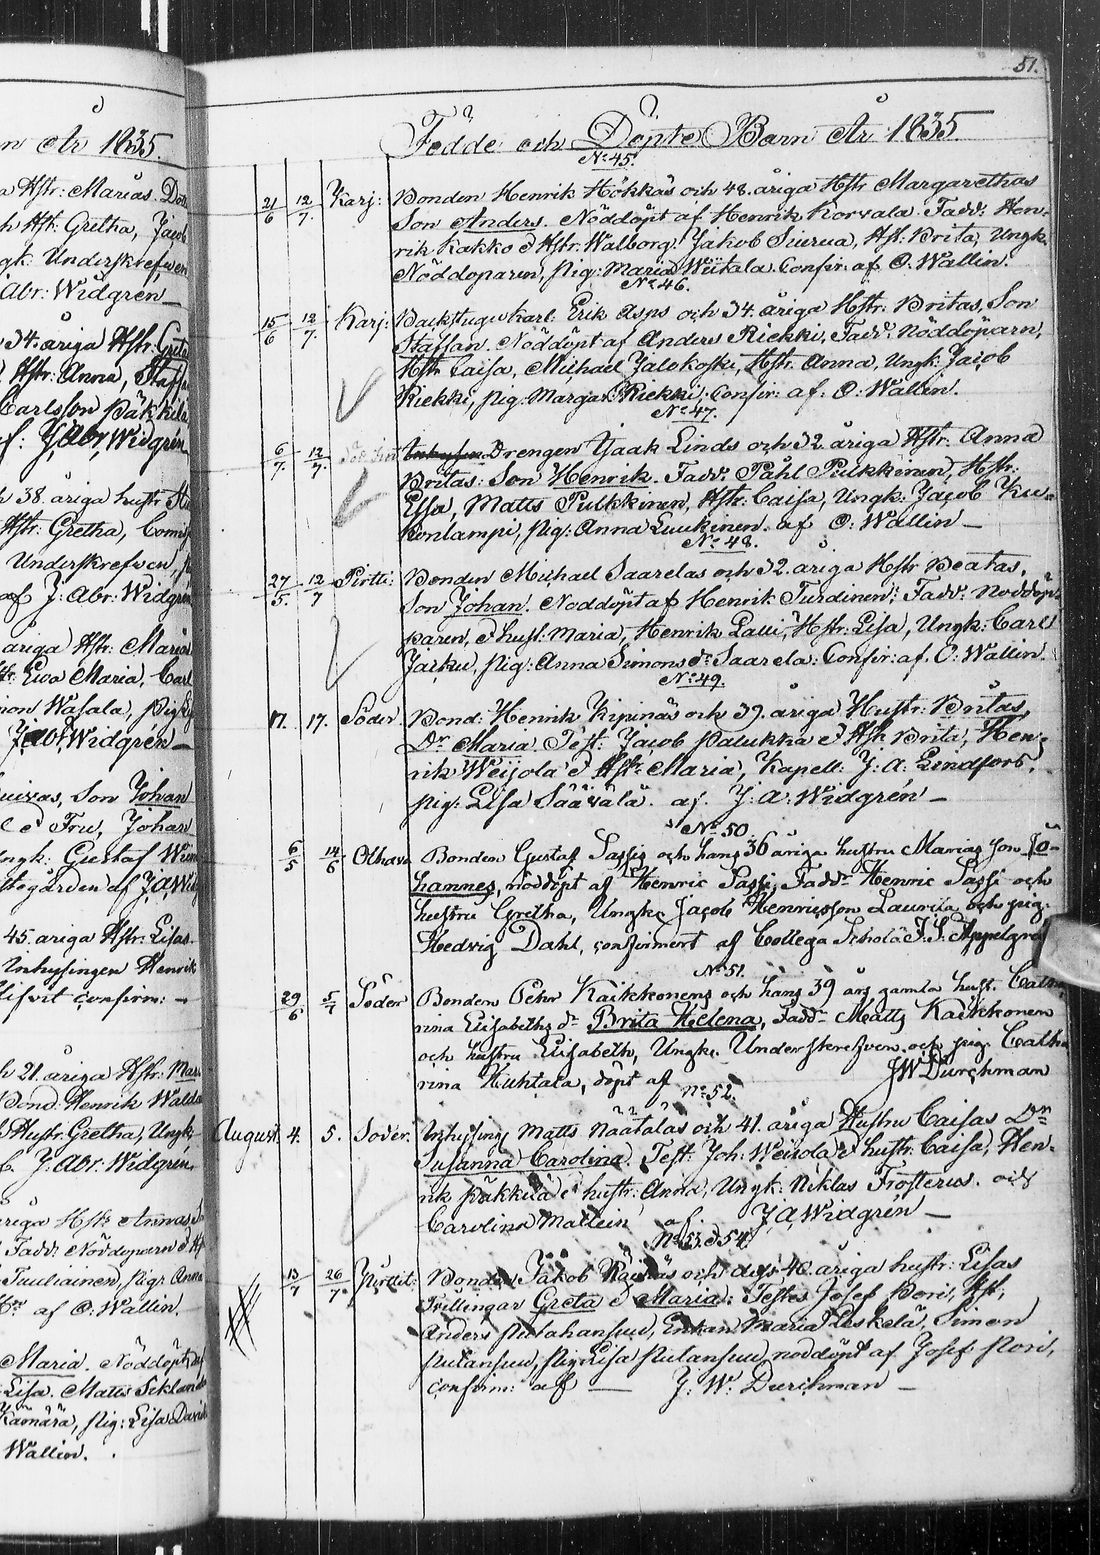 51.
Födde och Döpte Barn År 1835
No 45.
21/6 12/7. Karj: Bonden Henrik Hökkäs och 48. åriga Hstr Margarethas
Son Anders. Nöddöpt af Henrik Korvala. Fadd: Hen-
rik Kakko & Hstr: Walborg, Jakob Siurua, Hst: Brita, Ungk:
Nöddöparen, Pig: Maria Wiitala. Confir: af O. Wallin.
No 46.
15/6 12/7. Karj: Backstugukarl. Erik Asps och 34. åriga Hstr: Britas, Son
Staffan. Nöddöpt af Anders Riekki, Fadd: Nöddöparn,
Hstr Caisa, Michael Jalokoski, Hstr: Anna, Ungk: Jacob
Riekki, Pig: Margar: Riekki: Confir: af: O: Wallin.
No 47.
6/7. 12/7. Drengen Isaak Linds och 32 åriga Hstr. Anna
Britas: Son Henrik. Fadd: Påhl Pulkkinen, Hstr:
Elsa, Matts Pulkkinen, Hstr: Caisa, Ungk: Jacob Kui-
Konlampi, Pig: Anna Luukinen. af O: Wallin —
No 48.
27/5. 12/7 Pirtti: Bonden Michael Saarelas och 32. åriga Hstr Beatas,
Son Johan. Nöddöpt af Henrik Turdinen; Fadd: Noddö-
paren, & hust: Maria, Henrik Lalli, Hstr: Lisa, Ungk: Carl
Jaiku, Pig: Anna Simons dr Saarela: Confir: af: O: Wallin.
No 49.
17. 17. Söder Bond: Henrik Kipinäs och 39. åriga Hustr: Britas,
Dr Maria. Test: Jacob Palukka & Hstr Brita, Hen-
rik Weijola & Hstr: Maria, Kapell: J: A: Lindfors,
Pig: Lisa Säävälä. af. J: A: Widgrén —
No 50
6/5 14/6 Olhava Bonden Gustaf Sassis och hans 36 åriga hustru Marias Son Jo-
hannes, nöddöpt af Henric Sassi, Fadd: Henric Sassi och
hustru Gretha, Ungk: Jacob Henricsson Laurila och pig:
Hedvig Dahl, confirmert af Collega Scholæ J. S. Appelgren
No 51.
29/6 5/7 Söder Bonden Pehr Kaikkonens och hans 39 års gamla hust. Catha-
rina Elisabeths dr Brita Helena, Fadd: Matts Kaikkonen
och hustru Elisabeth, Ungk: Underskrefven och pig. Catha
rina Huhtala, döpt af JW Durchman
No 52.
August. 4. 5. Söder. Inhysing Matts Näätälas och 41. åriga Hustru Caisas Dr
Susanna Carolina. Test: Joh: Weijola & hustr: Caisa, Hen-
rik Päkkilä & hustr: Anna, Ungk: Niklas Frosterus. och
Carolina Mallein, af. J A Widgrén —
No 53. & 54.
13/7 26/7. Pirttit: Bonden Jakob Räisäs och dess 40. åriga hustr: Lisas
Trillingar Greta & Maria: Testes Josef Pori, Hst,
Anders Rutahansuu, Enkan Maria Leskelä, Simon
Rutansuu, Pig Lisa Rutansuu, nöddöpt af Josef Pori,
confirm: af — J: W: Durchman —
År 1835.
Hstr: Marias
Hst: Gretha, Jacob
Underskrefven
Abr: Widgrén —
34. åriga Hstr. Greta
Hstr: Anna, Staffan
Carlsson Päkkilä
J. Abr, Widgrén
38. åriga hustr
Hstr: Gretha,
Underskrefven,
af J: Abr: Widgrén
åriga Hstr: Marias
Ewa Maria, Carl
Wasala,
J Abr Widgrén —
Son Johan
& Fru, Johan
Gustaf
af J: A: Widg
45. åriga Hstr: Lisas
Inhysingen Henrik
confirm: —
21. åriga Hstr: Mar
Bond: Henrik
Hustr: Gretha, Ungk:
J. Abr: Widgrén.
åriga Hstr: Annas
Fadd Nöddöparn &
Tuuliainen, Pigr Anna
af O: Wallin. —
Maria. Nöddöpt
Lisa. Matts
Kämärä, Pig: Lisa
Wallin.